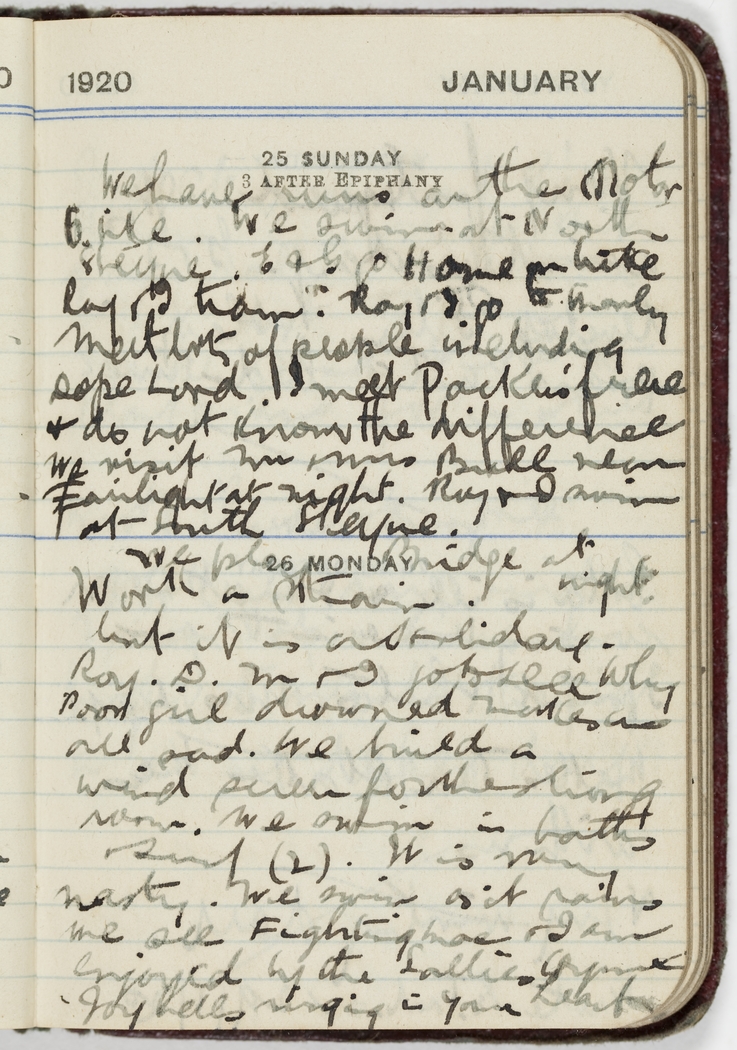 1920 JANUARY
25 SUNDAY
3 AFTER EPIPHANY
We have runs on the Motor
Bike. We swim at North
Steyne. E & G go Home on bike
Roy & I tram. Roy & I go to Manly
Meet lots of people including
Lord. I meet
& do not know the difference
We visit Mr & Mrs Bull near
Fairlight at night. Roy & I swim
at South Steyne.
26 MONDAY
We play Bridge at
night.
Worth a
but it is a holiday.
Roy. D. M & I go to see Why
Poor girl drowned makes us
all sad. We build a
wind screen for the
room. We swim in baths
& surf (2). It is very
nasty. We swim as it rains
We see Fighting Mac & I am
enjoyed by the
Joybells ringing in your heart